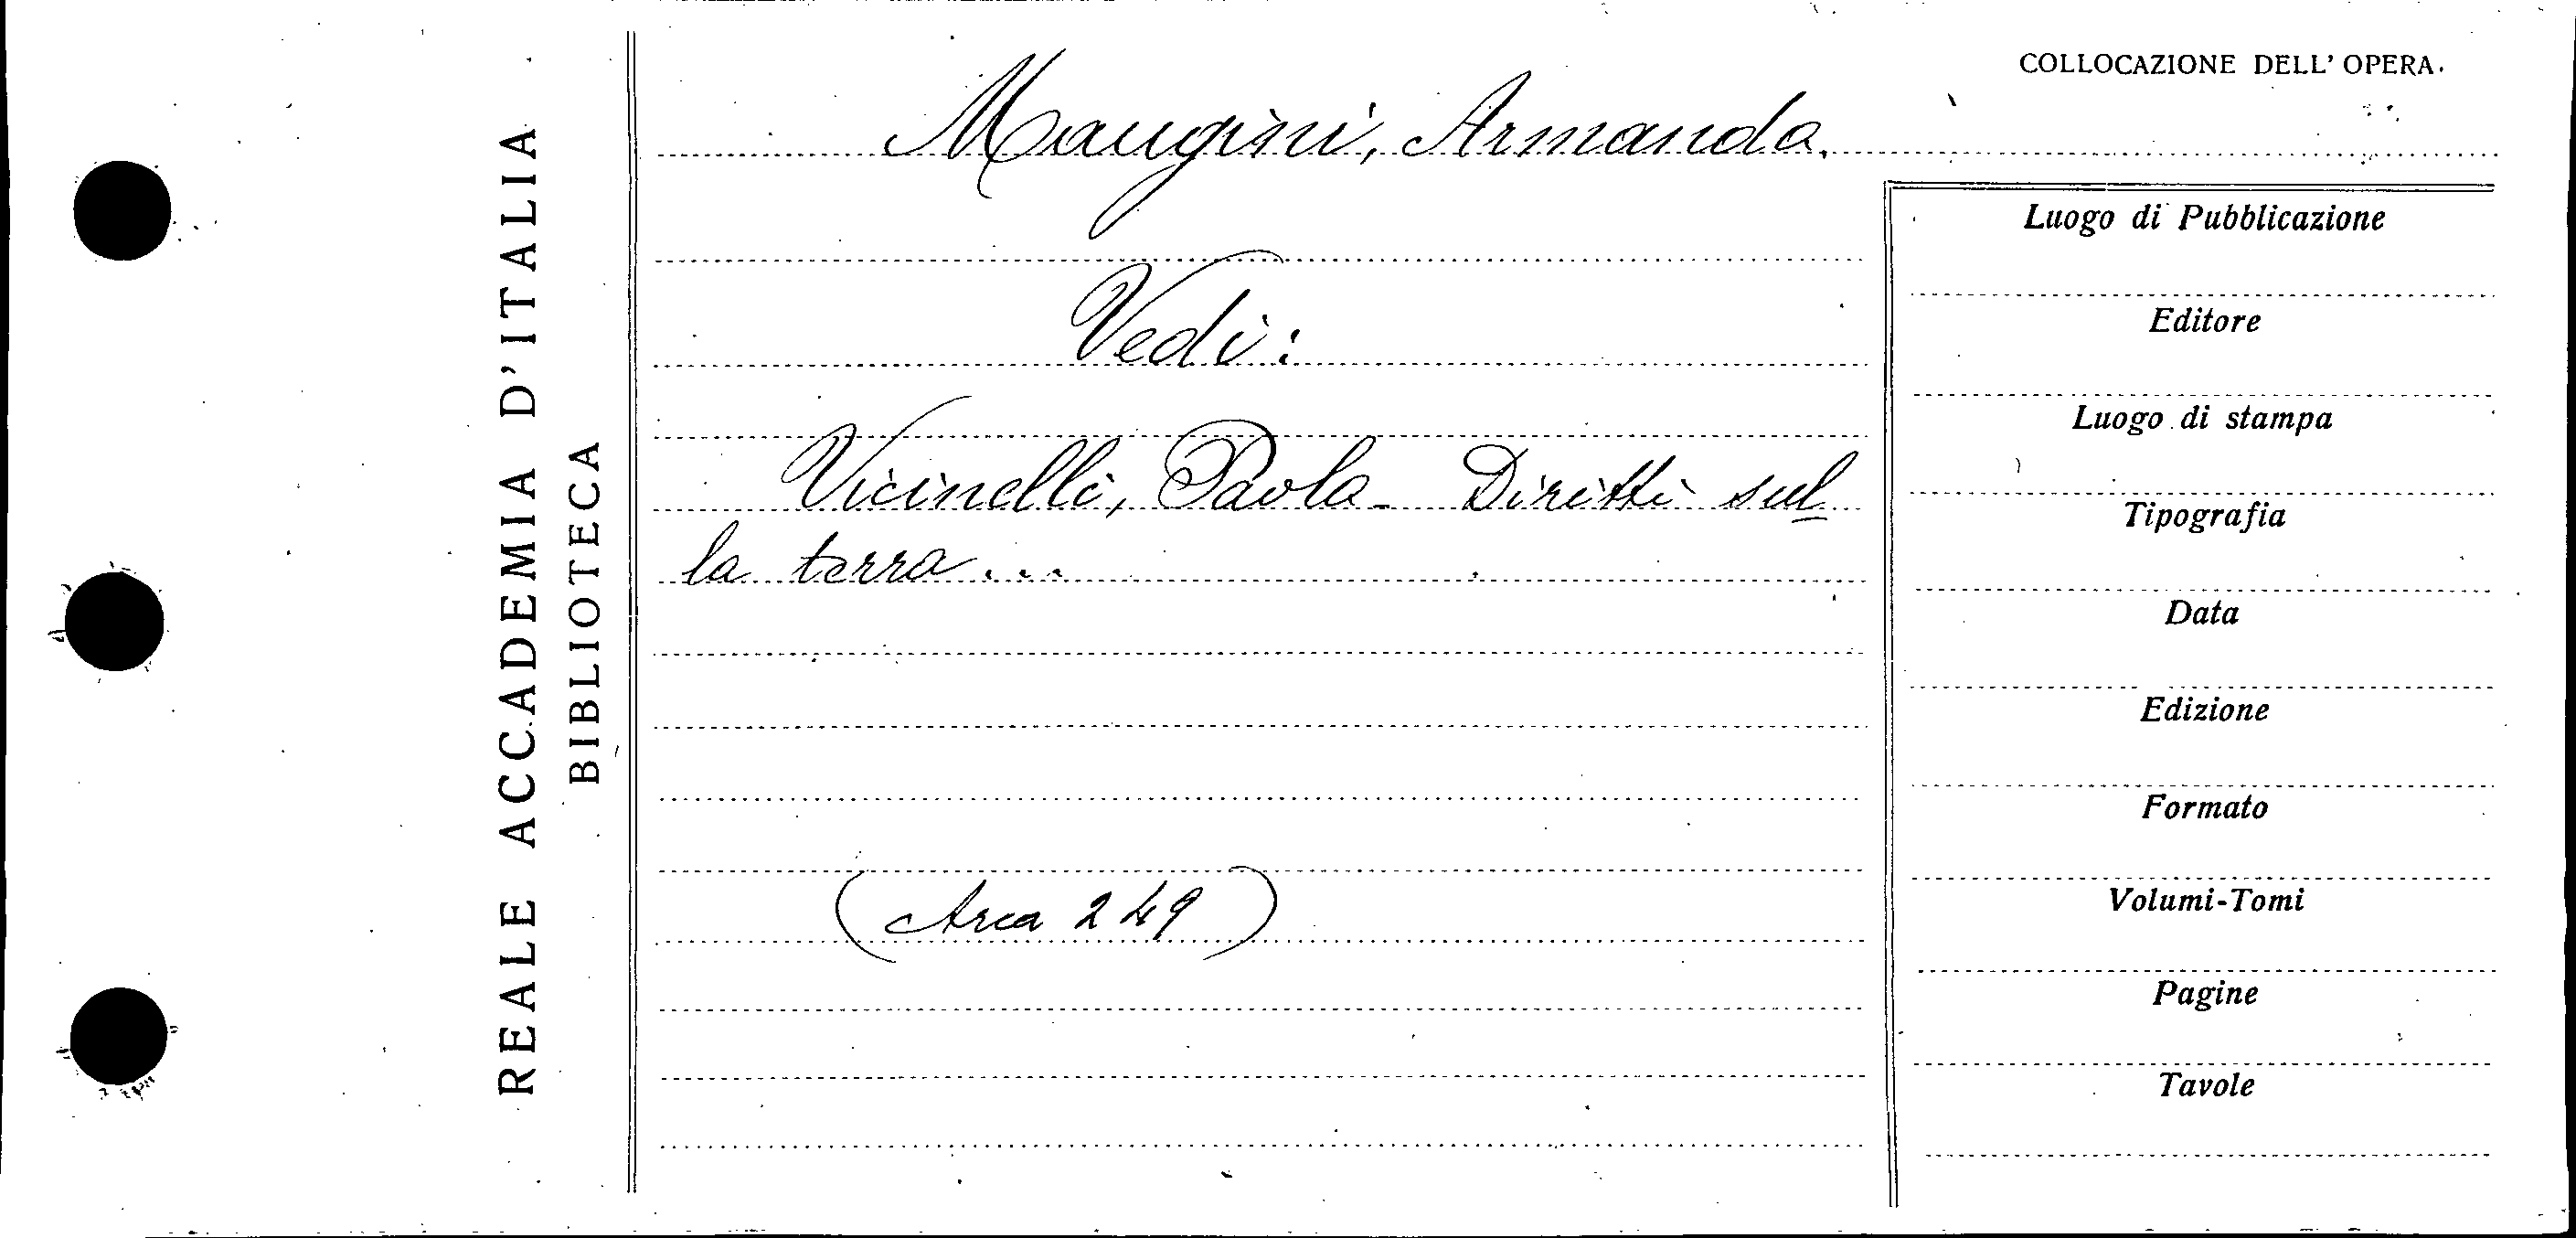 REALE ACCADEMIA D'ITALIA
BIBLIOTECA
COLLOCAZIONE DELL' OPERA.
Mangini, Armanda.
Vedi:
Vicinelli, Paola - Diritti sul
la terra...
(Area 249)
Luogo di Pubblicazione
Editore
Luogo di stampa
Tipografia
Data
Edizione
Formato
Volumi-Tomi
Pagine
Tavole